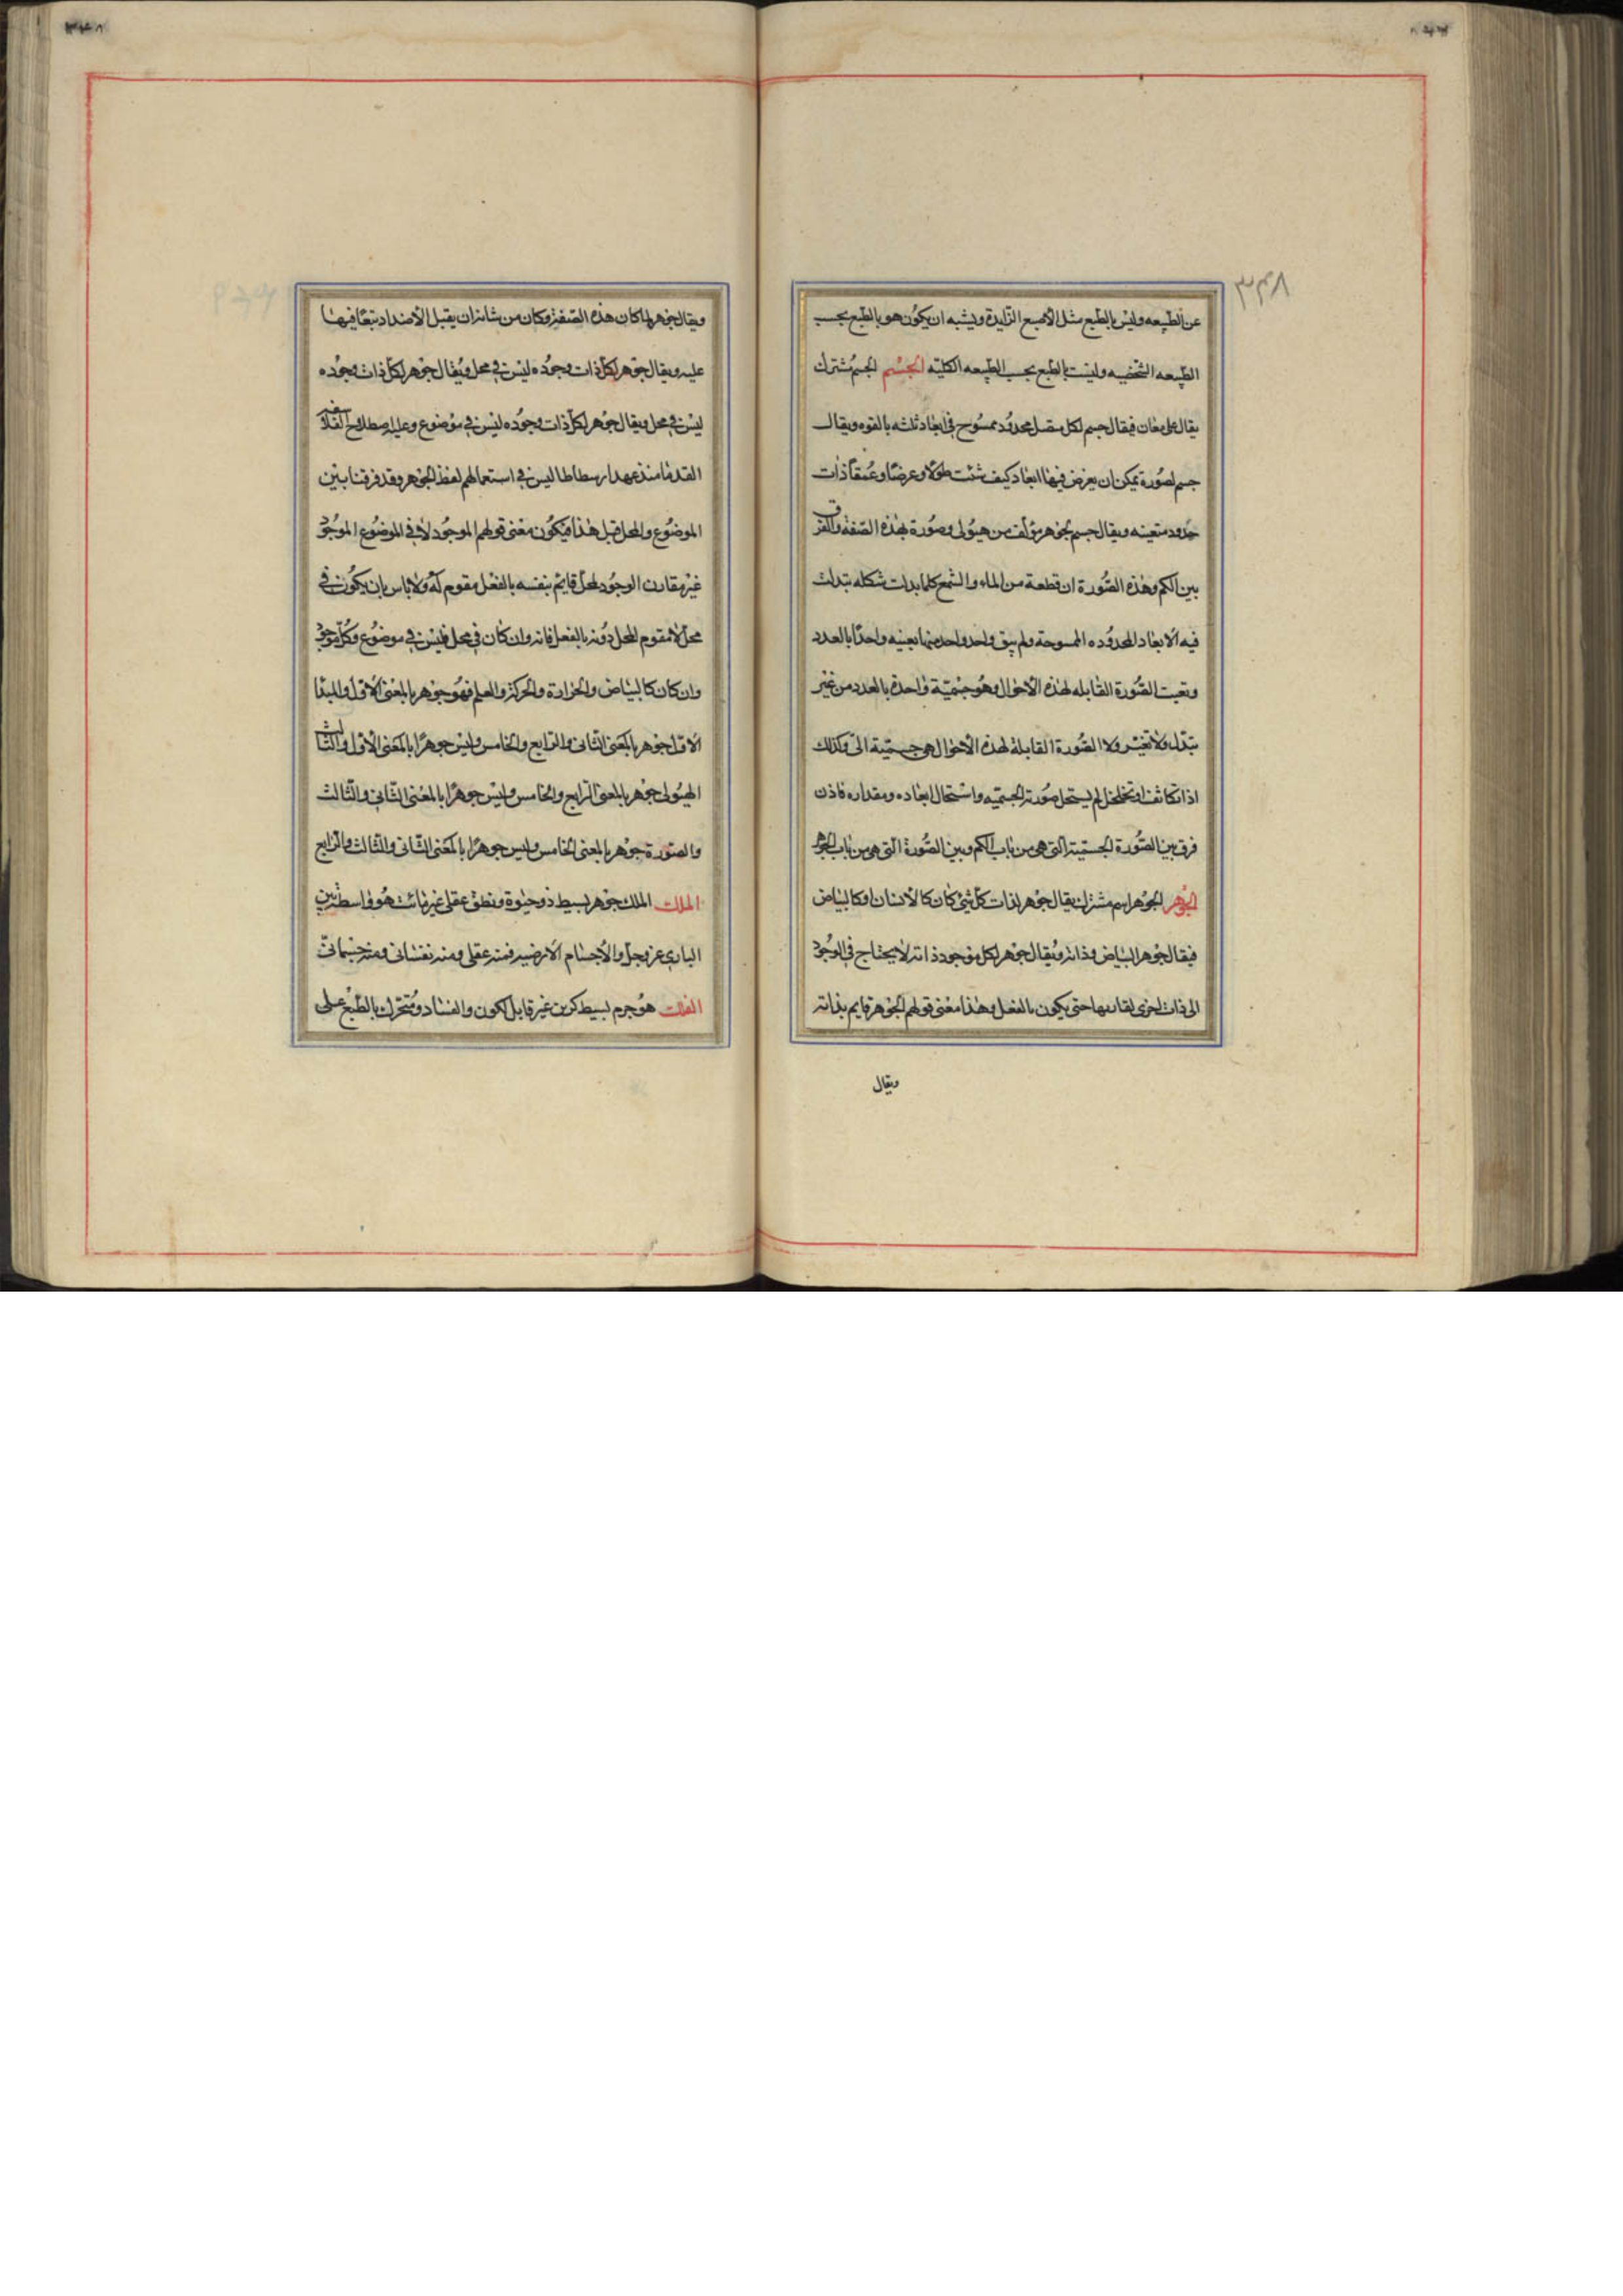 ٣٤٨
عن الطبيعه وليس بالطبع مثل الاصبع الزايدة ويشبه ان يكون هو بالطبع بحسب
الطبيعه الشخصيه وليست بالطبع بحسب الطبيعه الكلية الجسم الجسم مشترك
يقال على معان فيقال جسم لكل متصل محدود ممسوح فى ابعاد ثلثه بالقوه ويقال
جسم لصورة يمكن ان يعرض فيها ابعاد كيف شئت طولا وعرضا وعمقا ذات
حدود متعينه ويقال جسم لجوهر مؤلف من هيولى وصورة بهذه الصفة والفرق
بين الكم وهذه الصورة ان قطعة من الماء والشمع كلما بدلت شكله تبدلت
فيه الابعاد المحدوده الممسوحة ولم يبق واحد واحد منها بعينه واحدا بالعدد
وبقيت الصورة القابله لهذه الاحوال وهو جسمية واحدة بالعدد من غير
تبدل ولا تغير ولا الصورة القابلة لهذه الاحوال هى جسمية الى وكذلك
اذا تكاثف او تخلخل لم يستحل صورته الجسميه واستحال ابعاده ومقداره فاذن
فرق بين الصورة الجسمية التى هى من باب الكم وبين الصورة التى هى من باب الجوهر
الجوهر الجوهر اسم مشترك يقال جوهر لذات كل شئ كان كالانسان او كالبياض
فيقال جوهر البياض وذاته ويقال جوهر لكل موجود ذاته لا يحتاج فى الوجود
الى ذات اخرى لقارنها حتى يكون بالفعل وهذا معنى قولهم الجوهر قايم بذاته
ويقال
ويقال جوهر لما كان هذه الصفة وكان من شانه ان يقبل الاضداد بتعاقبها
عليه ويقال جوهر لكل ذات وجوده ليس فى محل ويقال جوهر لكل ذات وجوده
ليس فى محل ويقال جوهر لكل ذات وجوده ليس فى موضوع وعليه اصطلاح الفلاسفه
القدما منذ عهد ارسطاطاليس فى استعمالهم لفظ الجوهر وقد فرقنا بين
الموضوع والمحل قبل هذا فيكون معنى قولهم الموجود لا فى الموضوع الموجود
غير مقارن الوجود لمحل قايم بنفسه بالفعل مقوم له ولا باس بان يكون فى
محل لا مقوم المحل دونه بالفعل فانه وان كان فى محل فليس فى موضوع وكل موجود
وان كان كالبياض والحرارة والحركة والعلم فهو جوهر بالمعنى الاول والمبدا
الاول جوهر بالمعنى الثانى والرابع والخامس وليس جوهرا بالمعنى الاول والثالث
الهيولى جوهر بالمعنى الرابع والخامس وليس جوهرا بالمعنى الثانى والثالث
والصورة جوهر بالمعنى الخامس وليس جوهرا بالمعنى الثانى والثالث والرابع
الملك الملك جوهر بسيط ذو حيوة ونطق عقلى غير مائت هو واسطة بين
البارى عز وجل والاجسام الارضيه فمنه عقلى ومنه نفسانى ومنه جسمانى
الفلك هو جرم بسيط كرى غير قابل لكون والفساد ومتحرك بالطبع على